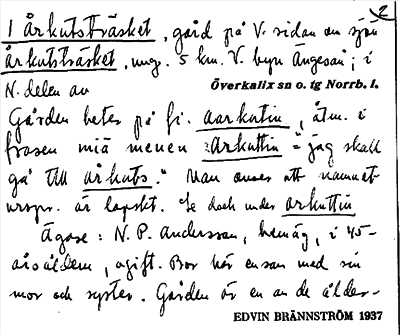 2
1 Årkutsträsket, gård på V. sidan om sjön
Årkutsträsket, ung. 5 km. V. byn Ängeså; i
N. delen av Överkalix sn o. tg Norrb. l.
Gården hetes på fi. aarkutin, åtm. i
frasen miä menen arkuttin "jag skall
gå till årkuts." Man anses att namnet
urspr. är lapskt. Se dock under arkuttin
Ägare: N. P. Andersson, hemäg, i 45-
årsåldern, ogift. Bor här ensam med sin
mor och syster. Gården är en av de älder-
EDVIN BRÄNNSTRÖM 1937